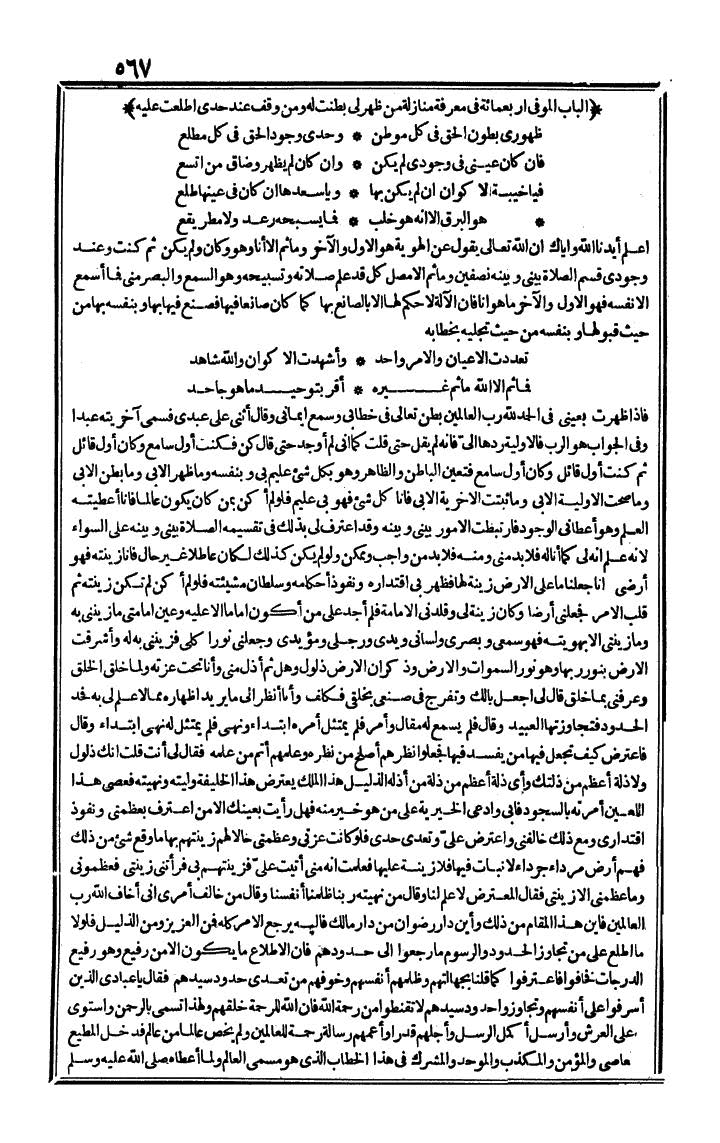 ٥٦٧
﴿الباب الموفى أربعمائة فى معرفة منازلة من ظهر لى بطنت له ومن وقف عند حدى اطلعت عليه﴾
ظهورى بطون الحق فى كل موطن * وحدى وجود الحق فى كل مطلع
فان كان عينى فى وجودى لم يكن * وان كان لم يظهر وضاق من اتسع
فيا خيبة الاكوان ان لم يكن بها * ويا سعدها ان كان فى عينها طلع
* هو البرق الا انه هو خلب * فما يسبحه رعد ولا مطر يقع
اعلم أيدنا الله واياك ان الله تعالى يقول عن الهوية هو الاول والآخر وما ثم الا أنا وهو وكان ولم يكن ثم كنت وعند
وجودى قسم الصلاة بينى وبينه نصفين وما ثم الا مصل كل قد علم صلاته وتسبيحه وهو السمع والبصر منى فما أسمع
الا نفسه فهو الاول والآخر ما هو أنا فان الآلة لا حكم لها الا بالصانع بها كما كان صانعا فيها فصنع فيها بها وبنفسه بها من
حيث قبولها وبنفسه من حيث تجليه بخطابه
تعددت الاعيان والامر واحد * وأشهدت الاكوان والله شاهد
فما ثم الا الله ما ثم غيره * أقر بتوحيد ما هو جاحد
فاذا ظهرت بعينى فى الحمد لله رب العالمين بطن تعالى فى خطابى وسمع ايمانى وقال أثنى على عبدى فسمى آخريته عبدا
وفى الجواب هو الرب فالاولية ردها الىّ فانه لم يقل حتى قلت كما انى لم أوجد حتى قال كن فكنت أول سامع وكان أول قائل
ثم كنت أول قائل وكان أول سامع فتعين الباطن والظاهر وهو بكل شئ عليم بى وبنفسه وما ظهر الا بى وما بطن الا بى
وما صحت الاولية الا بى وما ثبتت الاخرية الا بى فأنا كل شئ فهو بى عليم فلو لم أكن بمن كان يكون عالما فأنا أعطيته
العلم وهو أعطانى الوجود فارتبطت الامور بينى وبينه وقد اعترف لى بذلك فى تقسيمه الصلاة بينى وبينه على السواء
لانه علم انه لى كما أنا له فلا بد منى ومنه فلا بد من واجب وممكن ولو لم يكن كذلك لكان عاطلا غير حال فأنا زينته فهو
أرضى انا جعلنا ما على الارض زينة لها فظهر بى اقتداره ونفوذ أحكامه وسلطان مشيئته فلو لم أكن لم تكن زينة ثم
قلب الامر فجعلنى أرضا وكان زينة لى وقلدنى الامامة فلم أجد على من أكون اماما الا عليه وعين امامتى ما زيننى به
وما زيننى الا بهويته فهو سمعى وبصرى ولسانى ويدى ورجلى ومؤيدى وجعلنى نورا كلى فزيننى به له وأشرقت
الارض بنور ربها وهو نور السموات والارض وذكر ان الارض ذلول وهل ثم أذل منى وأنا تحت عزته ولما خلق الخلق
وعرفنى بما خلق قال لى اجعل بالك وتفرج فى صنعى بخلقى فكلف وأنا أنظر الى ما يريد اظهاره مما لا علم لى به فحد
الحدود فتجاوزتها العبيد وقال فلم يسمع له مقال وأمر فلم يمتثل أمره ابتداء ونهى فلم يمتثل له نهى ابتداء وقال
فاعترض كيف تجعل فيها من يفسد فيها فجعلوا نظرهم أصلح من نظره وعلمهم أتم من علمه فقال لى أنت قلت انك ذلول
ولا ذلة أعظم من ذلتك وأى ذلة أعظم من ذلة من أذله الذليل هذا الملك يعترض هذا الخليفة وليته ونهيته فعصى هذا
اللعين أمرته بالسجود فأبى وادعى الخيرية على من هو خير منه فهل رأيت بعينك الا من اعترف بعظمتى ونفوذ
اقتدارى ومع ذلك خالفنى واعترض علىّ وتعدى حدى فلو كانت عزتى وعظمتى حالا لهم زينتهم بها ما وقع شئ من ذلك
فهم أرض مرداء جرداء لا نبات فيها فلا زينة عليها فعلمت انه منى أتيت علىّ فزينتهم بى فرأتنى زينتى فعظمونى
وما عظمنى الا زينتى فقال المعترض لا علم لنا وقال من نهيته ربنا ظلمنا أنفسنا وقال من خالف أمرى انى أخاف الله رب
العالمين فأين هذا المقام من ذلك وأين دار رضوان من دار مالك فاليه يرجع الامر كله فمن العزيز ومن الذليل فلولا
ما اطلع على من تجاوز الحدود والرسوم ما رجعوا الى حدودهم فان الاطلاع ما يكون الا من رفيع وهو رفيع
الدرجات فخافوا فاعترفوا كما قلنا بجهالتهم وظلمهم أنفسهم وخوفهم من تعدى حدود سيدهم فقال يا عبادى الذين
أسرفوا على أنفسهم وتجاوزوا حدود سيدهم لا تقنطوا من رحمة الله فان الله للرحمة خلقهم ولهذا تسمى بالرحمن واستوى
على العرش وأرسل أكمل الرسل وأجلهم قدرا وأعمهم رسالة رحمة للعالمين ولم يخص عالما من عالم فدخل المطيع
عاصى والمؤمن والمكذب والموحد والمشرك فى هذا الخطاب الذى هو مسمى العالم ولما أعطاه صلى الله عليه وسلم